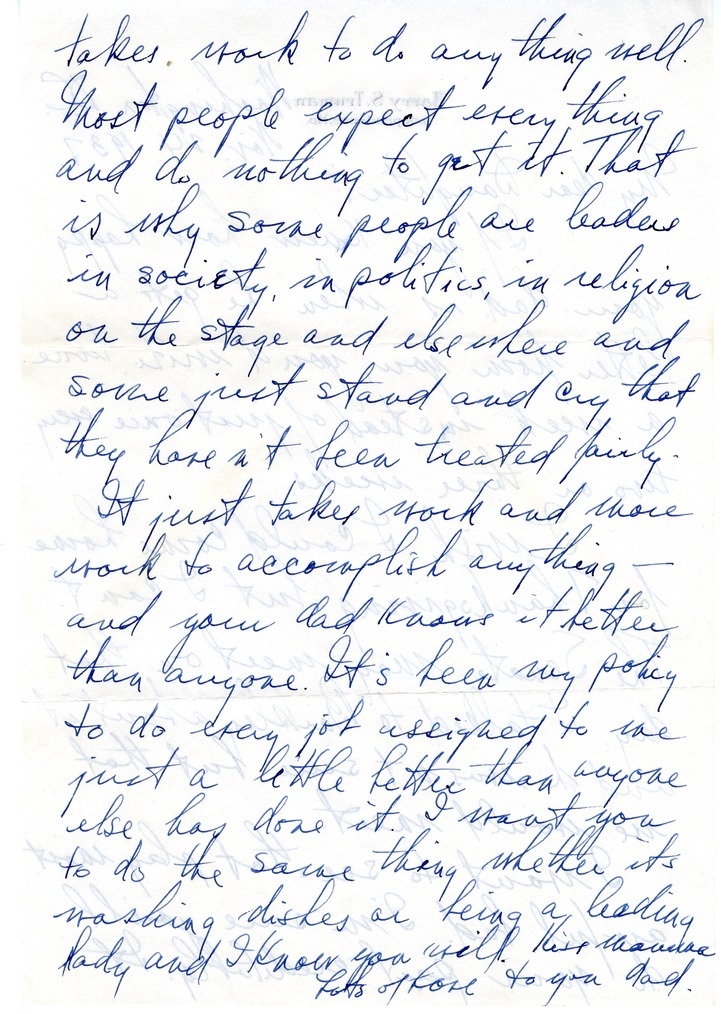 takes work to do anything well.
Most people expect everything
and do nothing to get it. That
is why some people are leaders
in society, in politics, in religion
on the stage and elsewhere and
some just stand and cry that
they haven't been treated fairly.
It just takes work and more
work to accomplish anything —
and your dad knows it better
than anyone. It's been my policy
to do every job assigned to me
just a little better than anyone
else has done it. I want you
to do the same thing whether its
washing dishes or being a leading
lady and I know you will. Kiss mamma
Lots of love to you Dad.